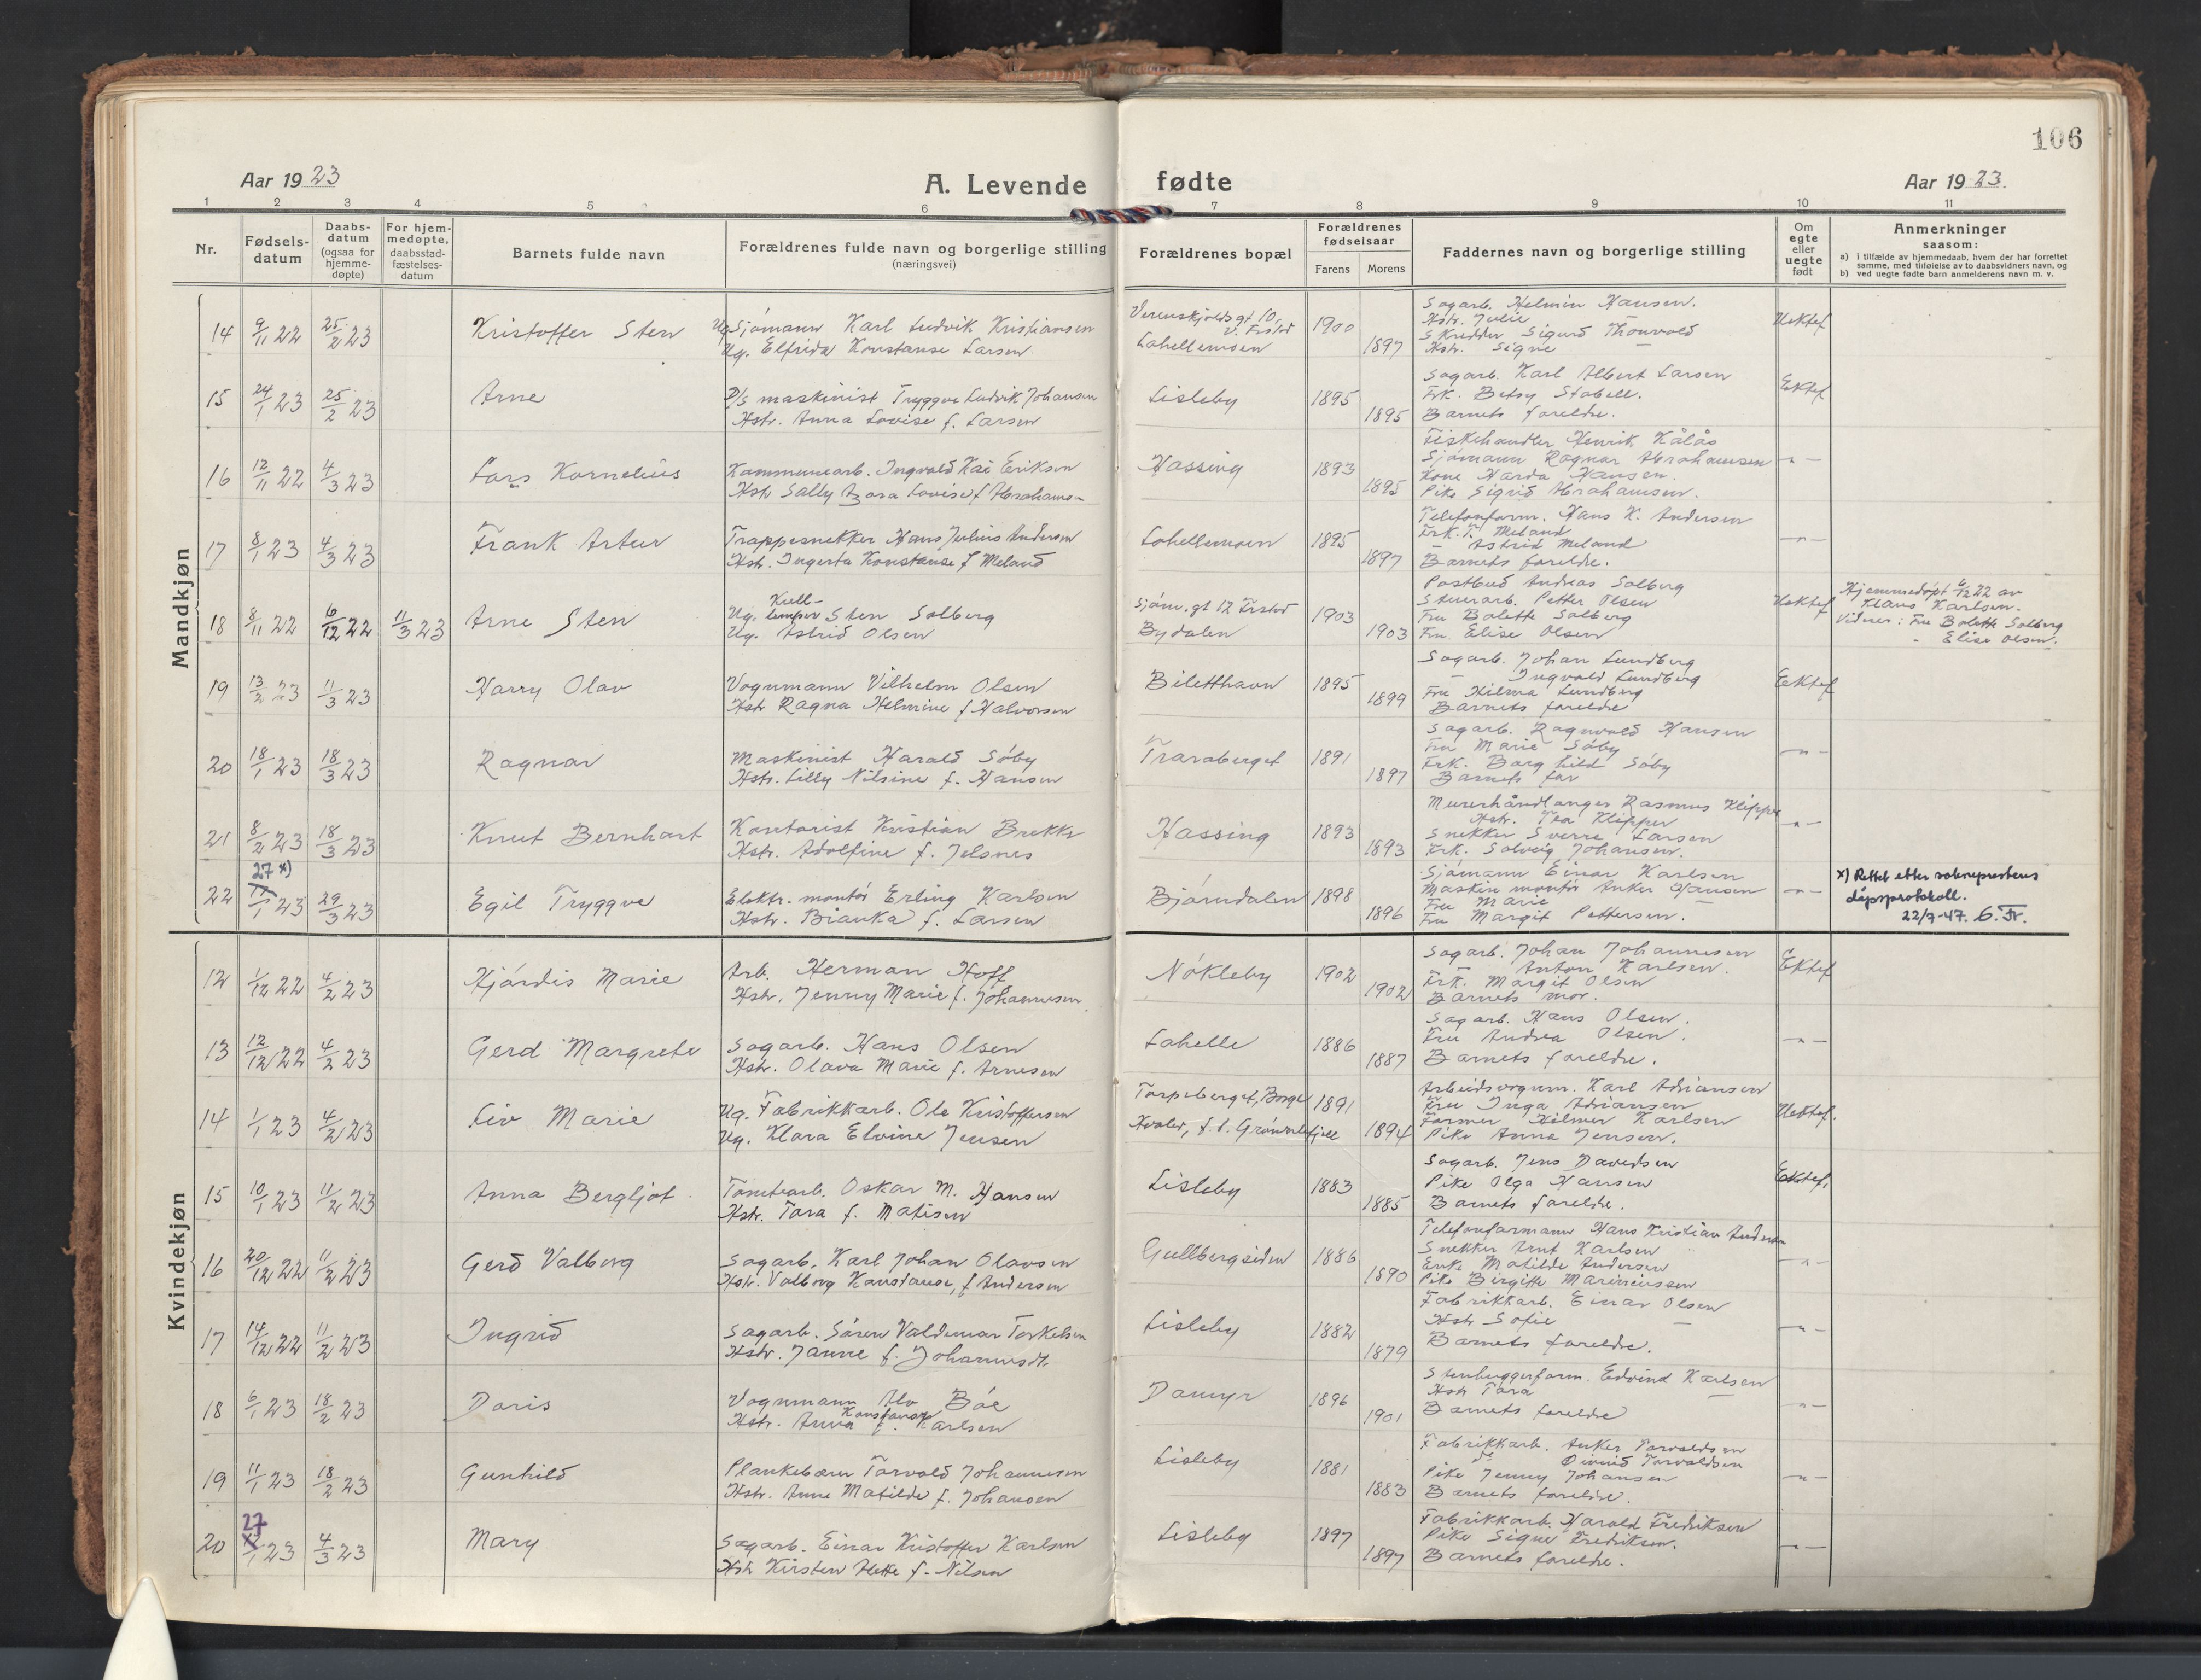 106
Aar 1923
A. Levende fødte
Aar 1923.
1 2 3 4 5 6 7 8 9 10 11
Nr.
Fødsels-datum
Daabs-datum (ogsaa for hjemme-døpte)
For hjem-medøpte, daabsstad-fæstelses-datum
Barnets fulde navn
Forældrenes fulde navn og borgerlige stilling (næringsvei)
Forældrenes bopæl
Forældrenes fødselsaar
Farens Morens
Faddernes navn og borgerlige stilling
Om egte eller uegte født
Anmerkninger saasom:
a) i tilfælde av hjemmedaab, hvem der har forrettet samme, med tilføielse av to daabsvidners navn, og
b) ved uegte fødte barn anmelderens navn m. v.
Mandkjøn
14 9/11 22 25/2 23 Kristoffer Sten
Ug. Sjømann Karl Ludvik Kristiansen
Ug. Elfrida Konstanse Larsen
Lahellemoen
1900 1897
Sagarb. Helmin Hansen.
Hstr. Julie
Skredder Sigurd Thorvald
Hstr. Signe
Uektef
15 24/1 23 25/2 23 Arne
D/s maskinist Tryggve Ludvik Johansen
Hstr. Anna Lovise f. Larsen
Lisleby
1895 1895
Sagarb. Karl Albert Larsen
Frk. Betsy Stabell.
Barnets foreldre.
Ektef
16 12/11 22 4/3 23 Lars Kornelius
Kommunearb. Ingvald Kai Eriksen
Hstr Sally Azora Lovise f Abrahams-
Hassing
1893 1895
Fiskehandler Henrik Kålås
Sjømann Ragnar Abrahamsen
Kone Harda Hansen.
Pike Sigrid Abrahamsen.
-"-
17 8/1 23 4/3 23 Frank Artur
Trappesnekker Hans Julius Andersen
Hstr. Ingerta Konstanse f Meland
Lahellemoen
1895 1897
Telefonform. Hans K. Andersen
Frk. T. Meland
- Astrid Meland
Barnets foreldre.
-"-
18 8/11 22 6/12 22 11/3 23 Arne Sten
Ug. Kull-lemper Sten Solberg
Ug. Astrid Olsen
Sjøm.gt 12 Frstad
Bydalen
1903 1903
Postbud Andreas Solberg
Stuerarb. Petter Olsen
Fru Bolette Solberg
Fru Elise Olsen
Uektef
Hjemmedøpt 6/12 22 av
Klaus Karlsen.
Vidner: Fru Bolette Solberg
- Elise Olsen.
19 13/2 23 11/3 23 Harry Olav
Vognmann Vilhelm Olsen
Hstr Ragna Helmine f Halvorsen
Biletthavn
1895 1899
Sagarb. Johan Lundberg
- Ingvald Lundberg
Fru Hilma Lundberg
Barnets foreldre
Ektef
20 18/1 23 18/3 23 Ragnar
Maskinist Harald Søby
Hstr. Lilly Nilsine f. Hansen
Traraberget
1891 1897
Sagarb. Ragnvald Hansen
Fru Marie Søby
Frk. Borghild Søby
Barnets far
-"-
21 8/2 23 18/3 23 Knut Bernhart
Kontorist Kristian Brekke
Hstr. Adolfine f. Jelsnes
Hassing
1893 1893
Murerhåndlanger Rasmus Klipper
Hstr. Tea Klipper
Snekker Sverre Larsen
Frk. Solveig Johansen.
-"-
22 27 x) 1 23 29/3 23 Egil Tryggve
Elektr. montør Erling Karlsen
Hstr. Bianka f. Larsen
Bjørndalen
1898 1896
Sjømann Einar Karlsen
Maskinmontør Anker Hansen
Fru Marie
Fru Margit Pettersen.
-"-
x) Rettet etter sokneprestens
dåpsprotokoll.
22/9-47. G. Fr.
Kvindekjøn
12 1/12 22 4/2 23 Hjørdis Marie
Arb. Herman Hoff
Hstr. Jenny Marie f. Johannesen
Nøkleby
1902 1902
Sagarb. Johan Johannesen
- Anton Karlsen.
Frk. Margit Olsen
Barnets mor.
Ektef
13 12/12 22 4/2 23 Gerd Margrete
Sagarb. Hans Olsen
Hstr. Olava Marie f. Arnesen
Lahelle
1886 1887
Sagarb. Hans Olsen.
Fru Andrea Olsen.
Barnets foreldre.
-"-
14 1/1 23 4/2 23 Liv Marie
Ug. Fabrikkarb. Ole Kristoffersen
Ug. Klara Elvine Jensen
Torpeberget, Borge
1891 1894
Arbeidsvognm. Karl Adriansen
Fru Inga Adriansen
Former Hilmer Karlsen
Pike Anna Jensen.
Uektef.
15 10/1 23 11/2 23 Anna Bergljot
Tomtearb. Oskar M. Hansen
Hstr. Tora f. Matisen
Lisleby
1883 1885
Sagarb. Jens Davidsen
Pike Olga Hansen
Barnets foreldre.
Ektef.
16 20/12 22 11/2 23 Gerd Valborg
Sagarb. Karl Johan Olavsen
Hstr. Valborg Konstanse, f Andersen
Gullbergsiden
1886 1890
Telefonformann Hans Kristian Andersen
Snekker Arnt Karlsen
Enke Matilde Andersen
Pike Birgitte Mariniussen
-"-
17 14/12 22 11/2 23 Ingrid
Sagarb. Søren Valdemar Torkelsen
Hstr. Janne f. Johannesdt.
Lisleby
1882 1879
Fabrikkarb. Einar Olsen
Hstr Sofie -
Barnets foreldre.
-"-
18 6/1 23 18/2 23 Doris
Vognmann Alv Bøe
Hstr. Anna Konstanse f. Karlsen
Damyr
1896 1901
Stenhuggerform. Edvind Karlsen
Hstr Tora -
Barnets foreldre
-"-
19 11/1 23 18/2 23 Gunhild
Plankebærer Torvald Johannesen
Hstr. Anne Matilde f. Johansen
Lisleby
1881 1883
Fabrikkarb. Anker Torvaldsen
do Øivind Torvaldsen
Pike Jenny Johansen
Barnets foreldre.
-"-
20 27/1 23 4/3 23 Mary
Sagarb. Einar Kristoffer Karlsen
Hstr Kirsten Alette f. Nilsen
Lisleby
1897 1897
Fabrikkarb. Harald Fredriksen
Pike Signe Fredriksen.
Barnets foreldre.
-"-